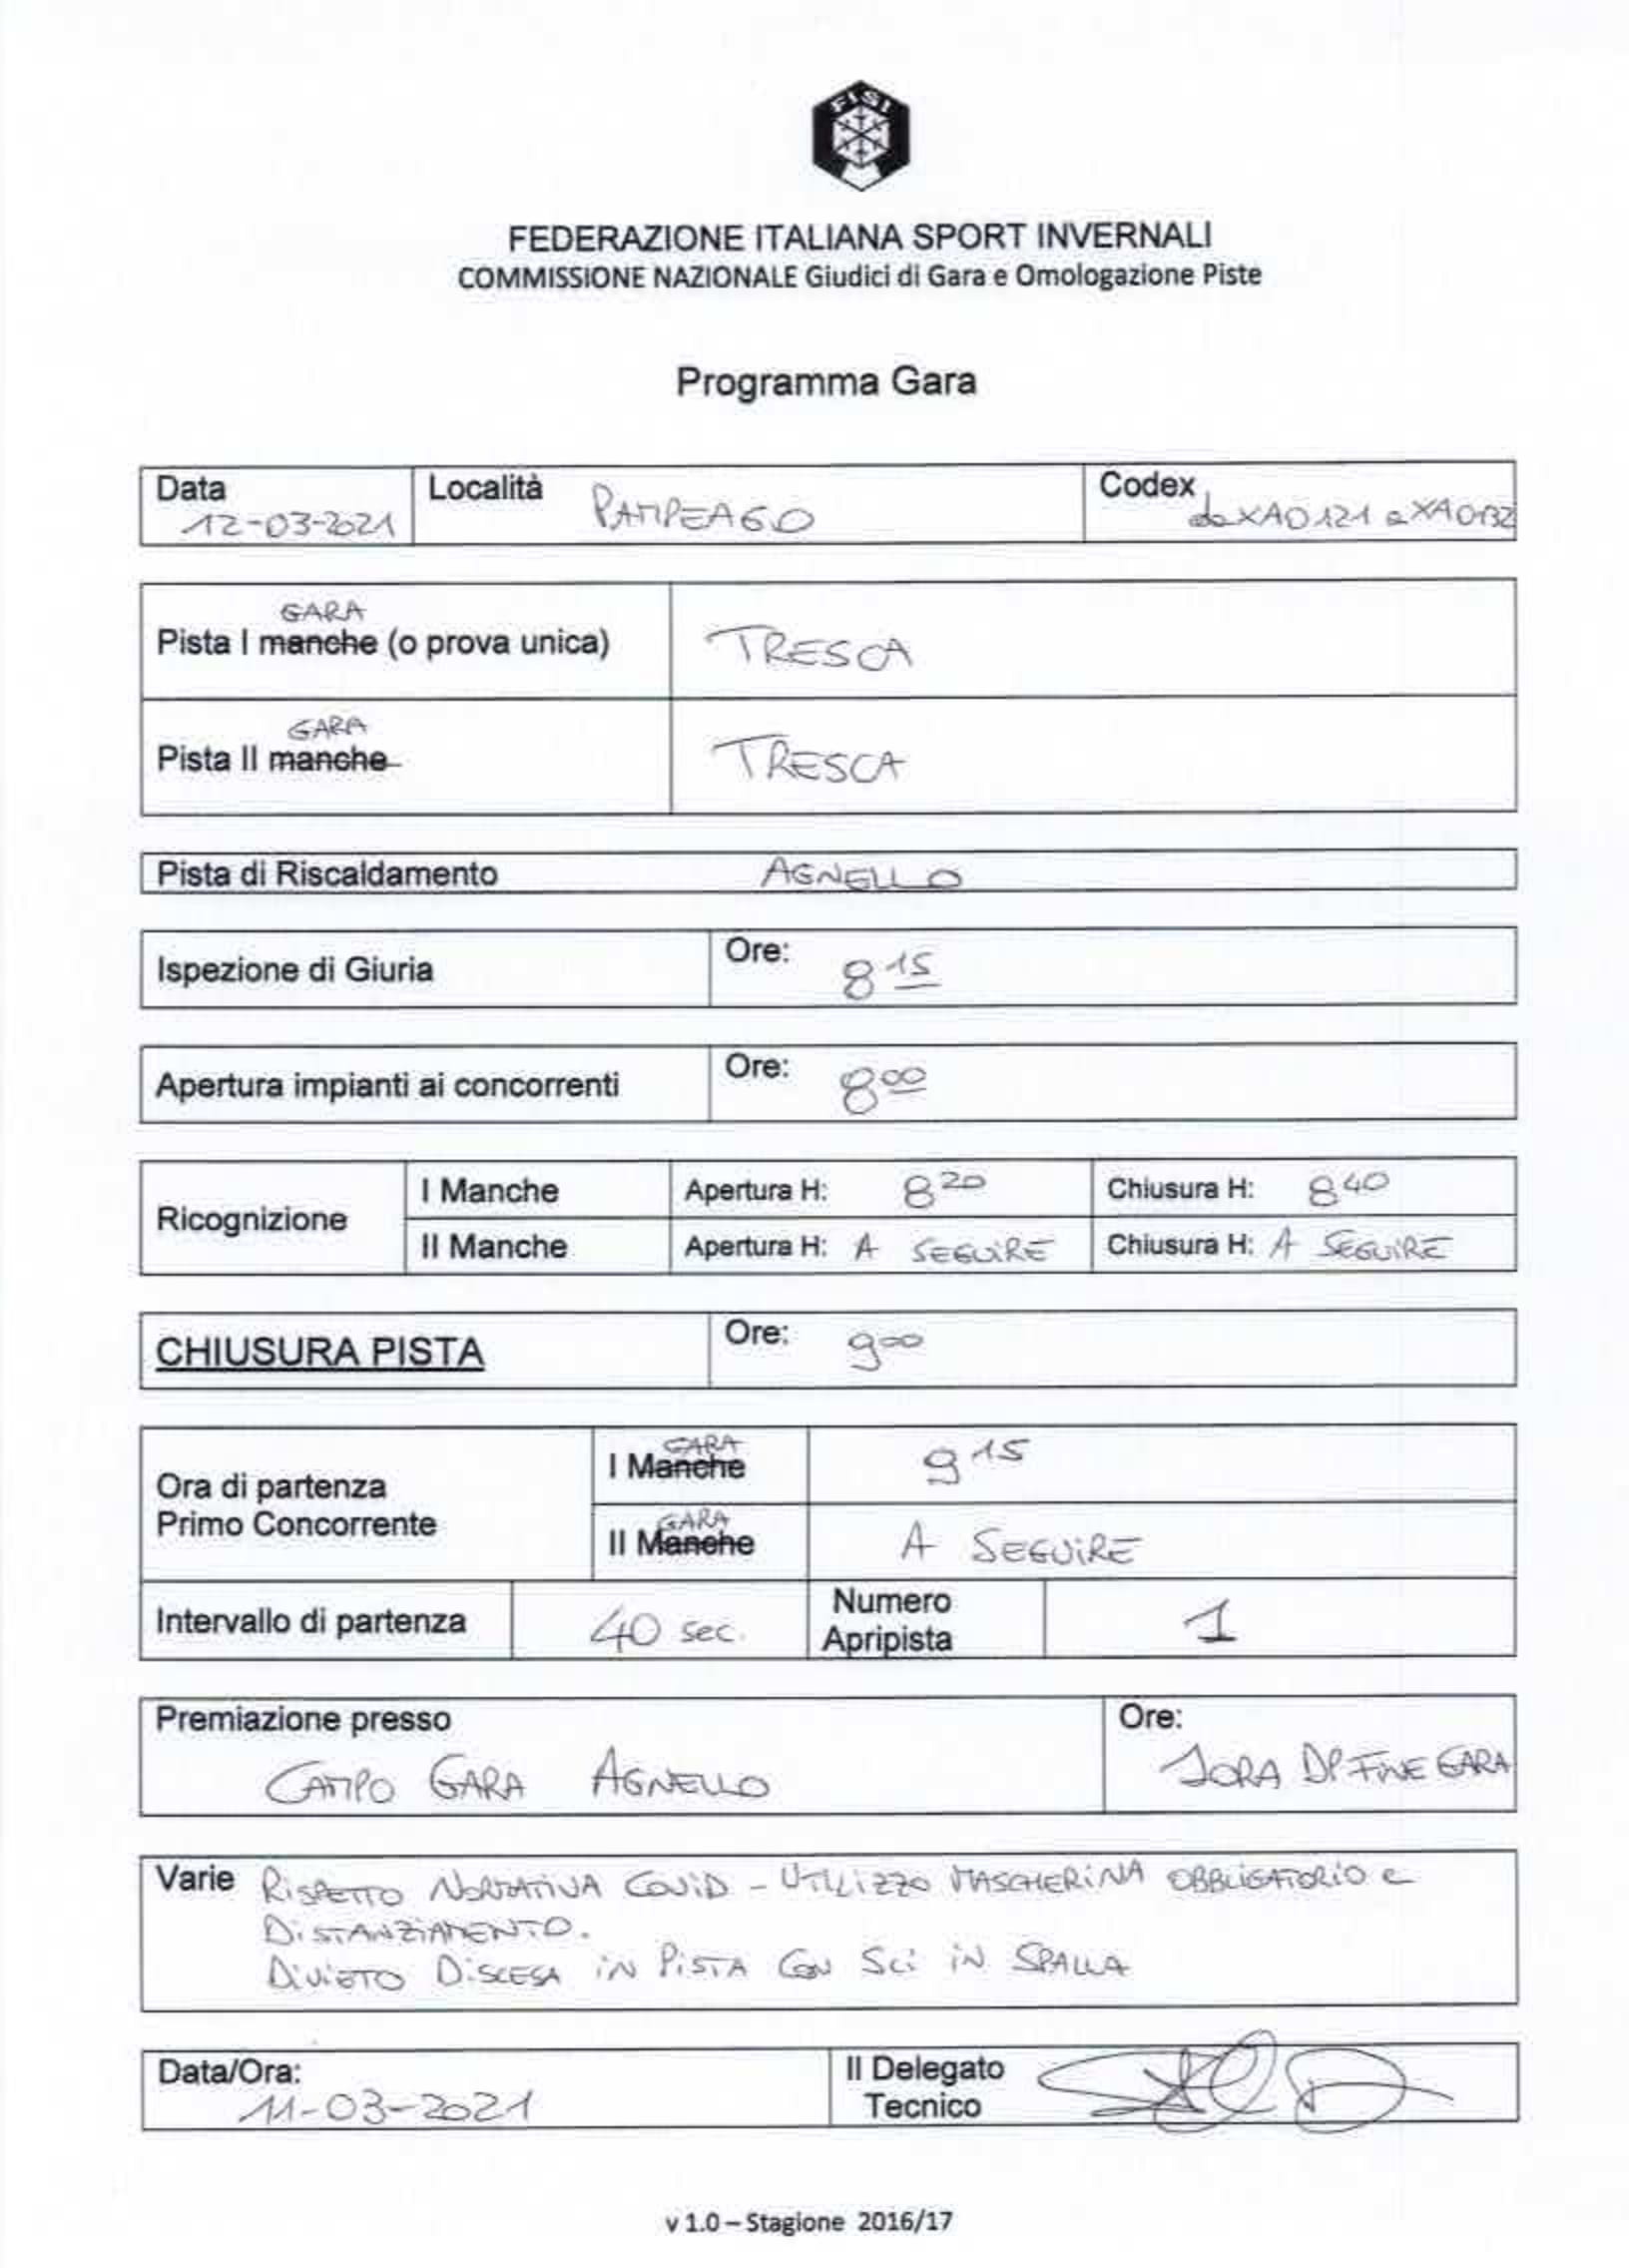 FISI
FEDERAZIONE ITALIANA SPORT INVERNALI
COMMISSIONE NAZIONALE Giudici di Gara e Omologazione Piste
Programma Gara
Data Località Codex
12-03-2021 PAMPEAGO da XA0121 a XA0132
GARA
Pista I manche (o prova unica) TRESCA
GARA
Pista II manche TRESCA
Pista di Riscaldamento AGNELLO
Ispezione di Giuria Ore: 8 15
Apertura impianti ai concorrenti Ore: 8 00
Ricognizione
I Manche Apertura H: 8 20 Chiusura H: 8 40
II Manche Apertura H: A SEGUIRE Chiusura H: A SEGUIRE
CHIUSURA PISTA Ore: 9 00
Ora di partenza
Primo Concorrente
GARA
I Manche 9 15
GARA
II Manche A SEGUIRE
Intervallo di partenza 40 sec. Numero
Apripista 1
Premiazione presso Ore:
CAMPO GARA AGNELLO 1ORA DP FINE GARA
Varie RISPETTO NORMATIVA COVID - UTILIZZO MASCHERINA OBBLIGATORIO e
DISTANZIAMENTO.
DIVIETO DISCESA IN PISTA CON SCI IN SPALLA
Data/Ora: Il Delegato
11-03-2021 Tecnico
v 1.0 – Stagione 2016/17